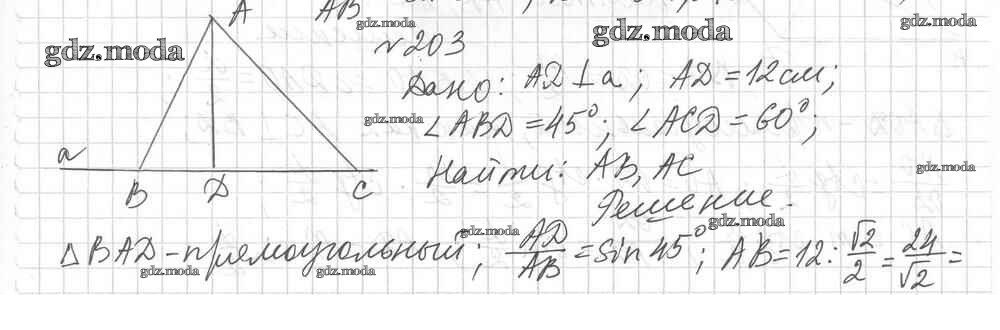 AB
A
gdz.moda
gdz.moda
gdz.moda
gdz.moda
№203
Дано: AD⊥a; AD=12см;
gdz.moda
∠ABD=45°; ∠ACD=60°;
a
B D C
Найти: AB, AC
gdz.moda
Решение.
gdz.moda
gdz.moda
△BAD-прямоугольный; AD/AB=sin45°; AB=12:√2/2=24/√2=
gdz.moda
gdz.moda